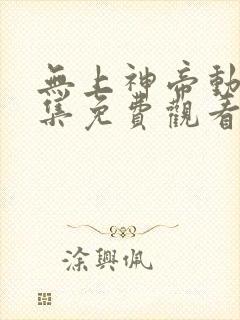 無上神帝動
集免費觀看
涂興佩